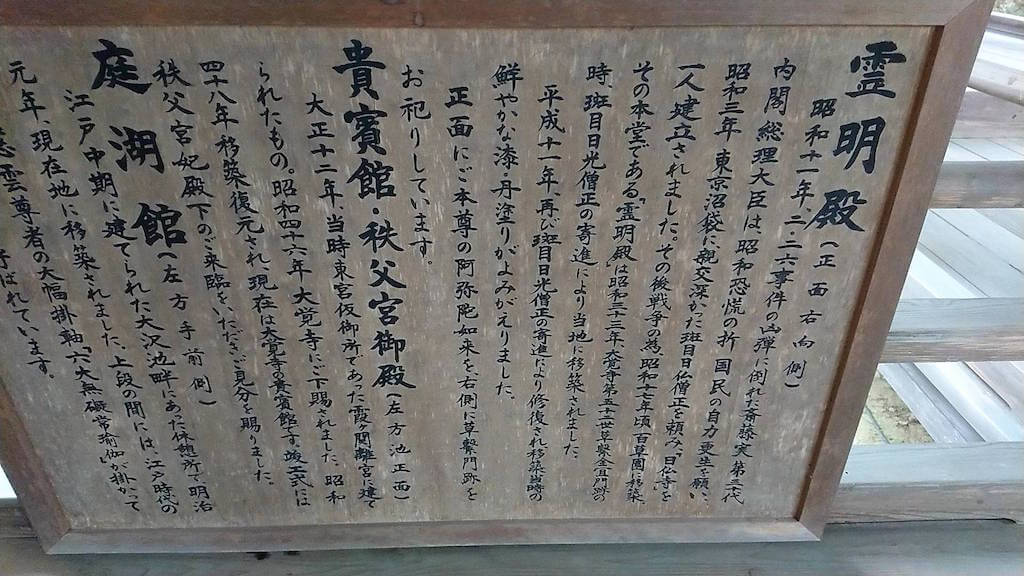 霊明殿(正面右向側)
昭和十一年、二・二六事件の凶弾に倒れた斎藤実第三十代
内閣総理大臣は、昭和恐慌の折 国民の自力更生を願い、
昭和三年 東京沼袋に親交深かった斑目日仏僧正を頼み、日仏寺を
一人建立されました。その後戦争の為、昭和十七年頃百草園に移築
その本堂である「霊明殿」は昭和三十三年、大覚寺第五十世草繋全冝門跡の
時、斑目日光僧正の寄進により当地に移築されました。
平成十一年、再び斑目日光僧正の寄進により修復され移築当時の
鮮やかな漆・丹塗りがよみがえりました。
正面にご本尊の阿弥陀如来を右側に草繋門跡を
お祀りしています。
貴賓館・秩父宮御殿(左方池正面)
大正十二年、当時東宮仮御所であった霞ヶ関離宮に建て
られたもの。昭和四十六年 大覚寺にご下賜されました。昭和
四十八年移築復元され、現在は大覚寺の貴賓館です。竣工式には
秩父宮妃殿下のご来臨をいただきご見分を賜りました。
庭湖館(左方手前側)
江戸中期に建てられた大沢池畔にあった休憩所で明治
元年、現在地に移築されました。上段の間には、江戸時代の
慈雲尊者の大幅掛軸「六大無礙常瑜伽」が掛かって
呼ばれています。